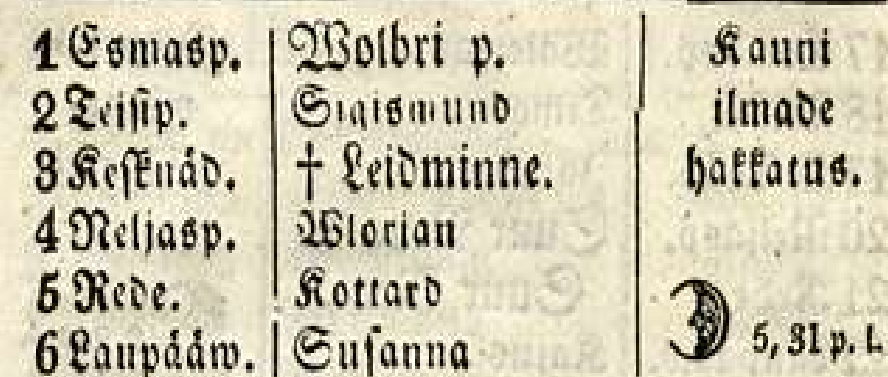 1 Esmasp. Wolbri p. Kauni
2 Teisip. Sigismund ilmade
3 Keſknäd. † Leidminne. hakkatus.
4 Neljasp. Wlorian
5 Rede. Kottard
6 Laupääw. Suſanna 5, 31 p. l.